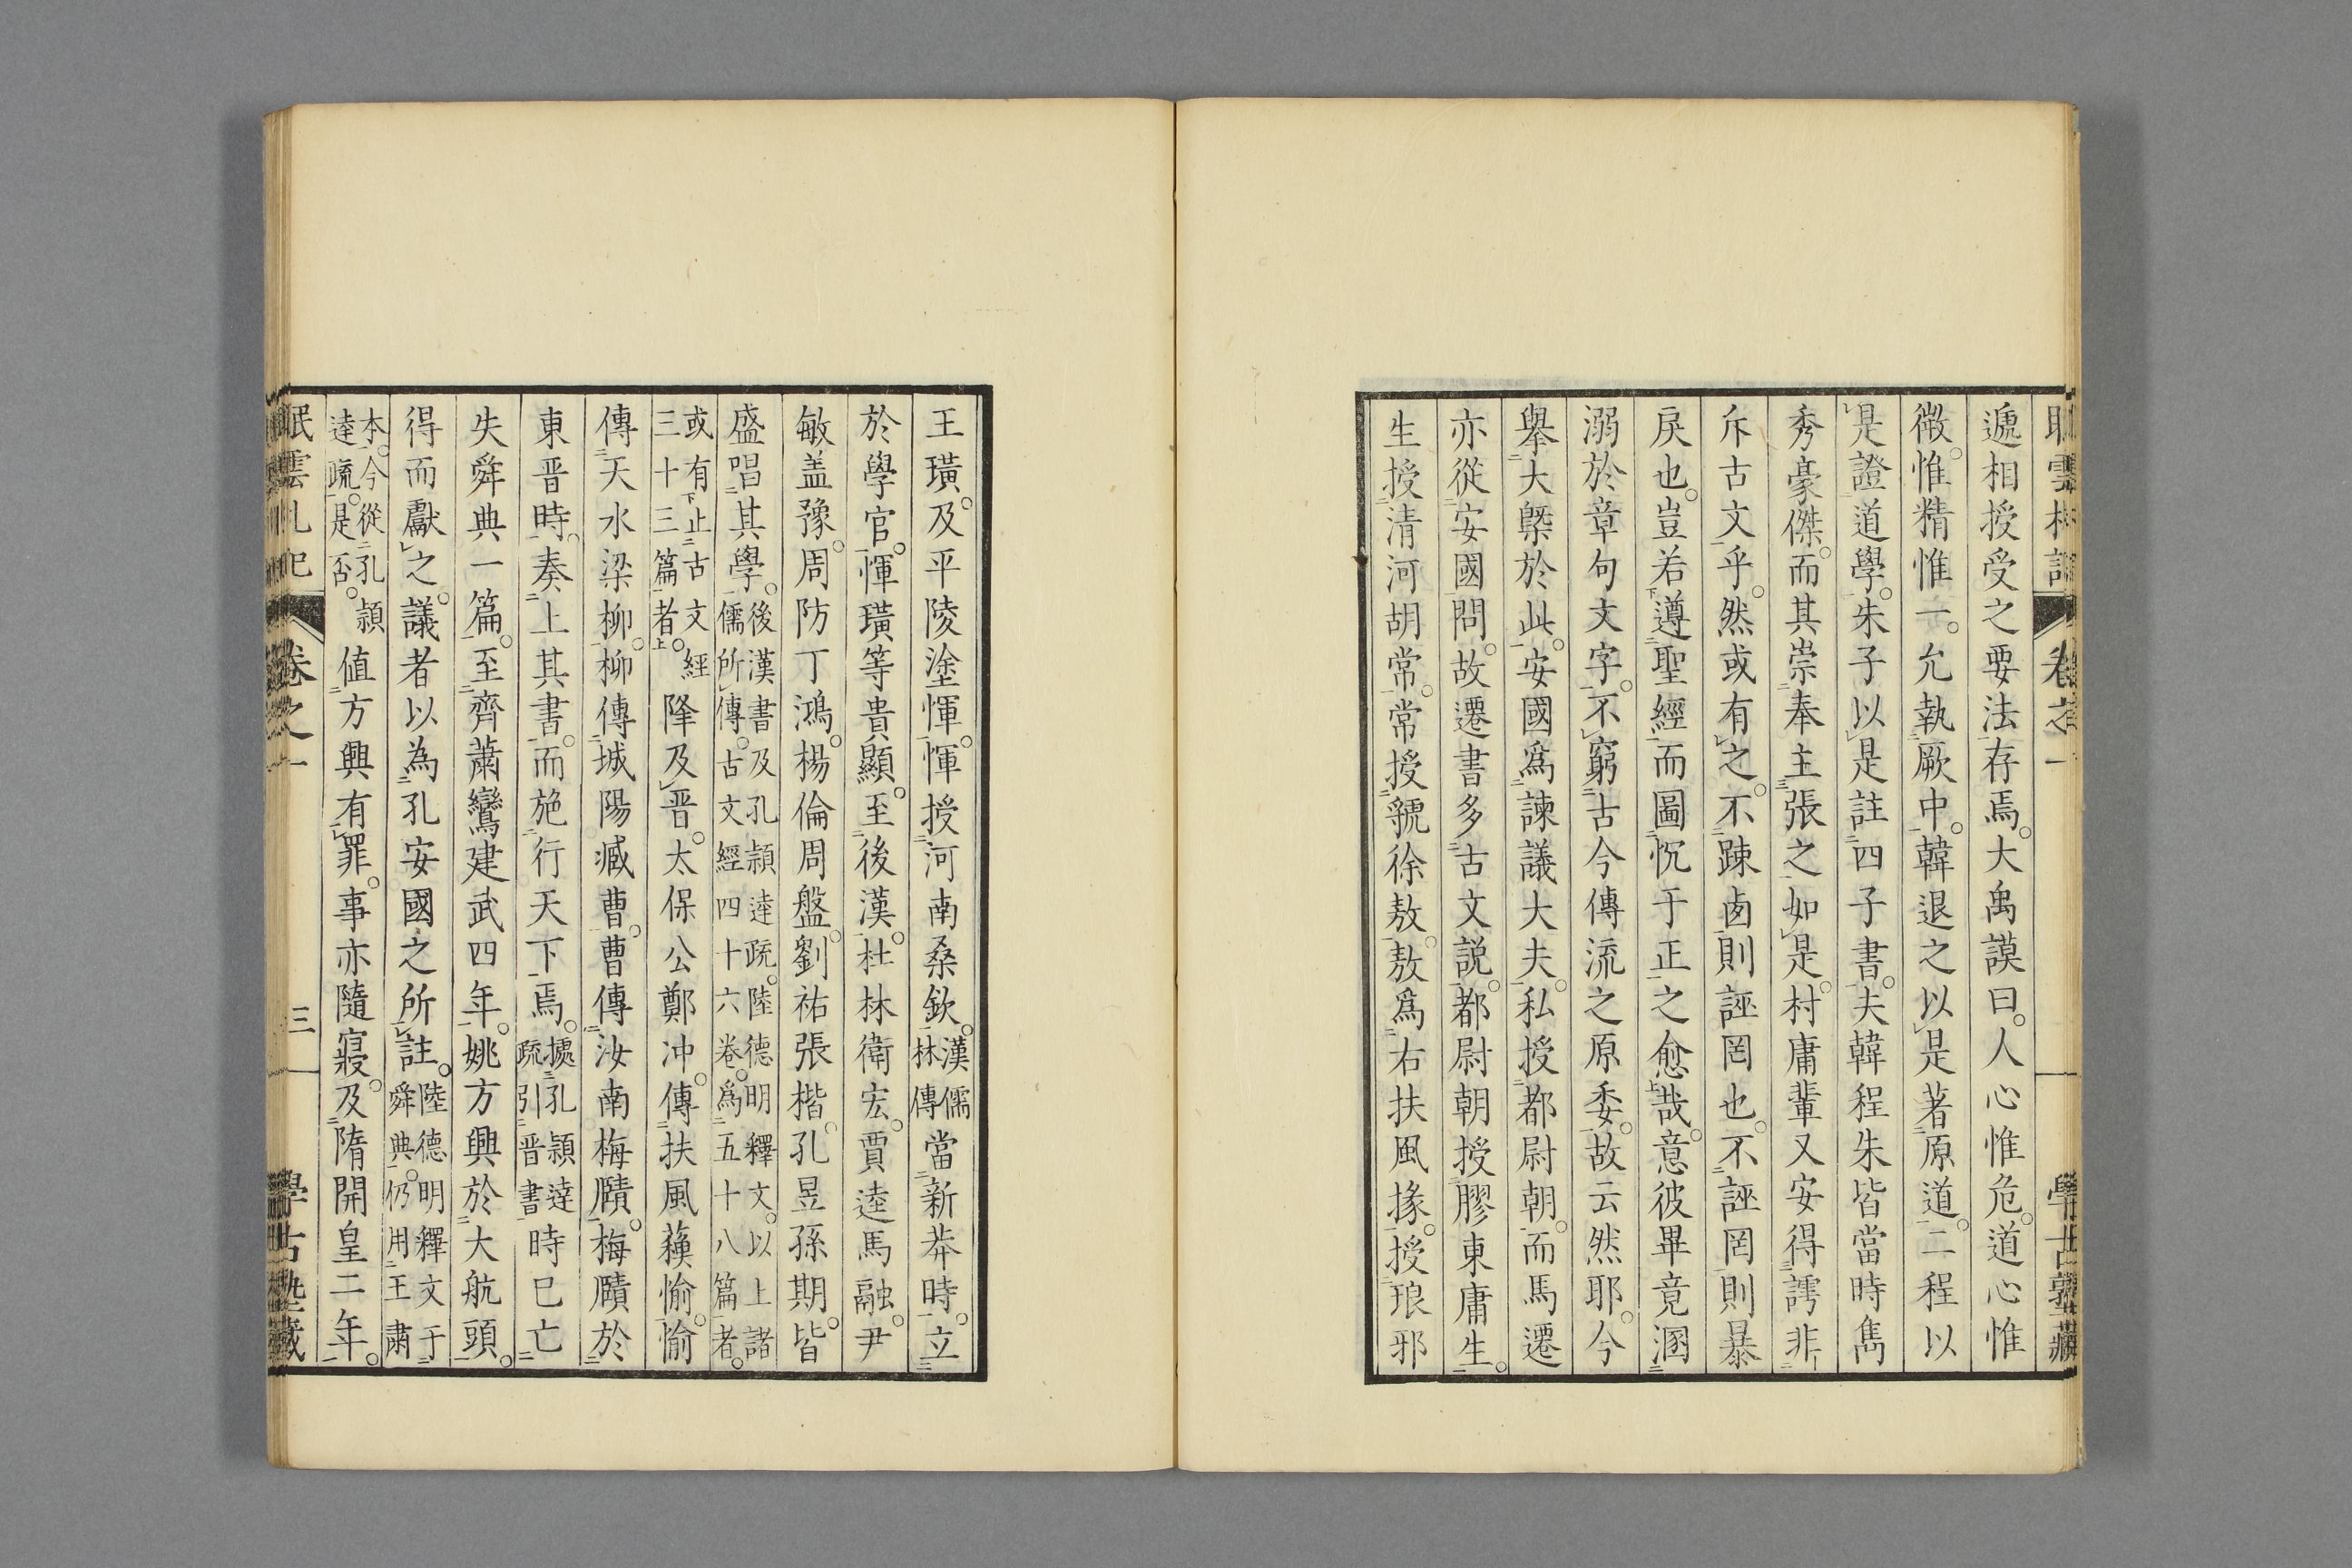 遞相授受之要法存焉。大禹謨曰。人心惟危。道心惟
微。惟精惟一。允執厥中。韓退之以是著原道。二程以
是證道學。朱子以是註四子書。夫韓程朱皆當時雋
秀豪傑。而其崇奉主張之如是。村庸輩又安得謣非
斥古文乎。然或有之。不踈鹵則誣罔也。不誣罔則暴
戾也。豈若遵聖經而圖怳于正之愈哉。意彼畢竟溷
溺於章句文字。不窮古今傳流之原委。故云然耶。今
擧大槩於此。安國爲諫議大夫。私授都尉朝。而馬遷
亦從安國問。故遷書多古文説。都尉朝授膠東庸生。
生授清河胡常。常授虢徐敖。敖爲右扶風掾。授琅邪
王璜。及平陵塗惲。惲授河南桑欽。漢儒林傳當新莽時。立
於學官。惲璜等貴顯。至後漢。杜林衛宏。賈逵馬融。尹
敏盖豫。周防丁鴻。楊倫周盤。劉祐張楷。孔昱孫期。皆
盛唱其學。後漢書及孔頴達疏。陸德明釋文。以上諸儒所傳。古文經四十六卷。爲五十八篇者。
或有止古文經三十三篇者。降及晋。太保公鄭冲。傳扶風蘓愉。愉
傳天水梁柳。柳傳城陽臧曹。曹傳汝南梅賾。梅賾於
東晋時。奏上其書。而施行天下焉。據孔頴達疏引晋書時已亡
失舜典一篇。至齊蕭鸞建武四年。姚方興於大航頭。
得而獻之。議者以為孔安國之所註。陸德明釋文于舜典。仍用王肅
本。今從孔頴達疏。是否。値方興有罪。事亦隨寢。及隋開皇二年。
眠雲札記 卷之一 三 學古塾藏